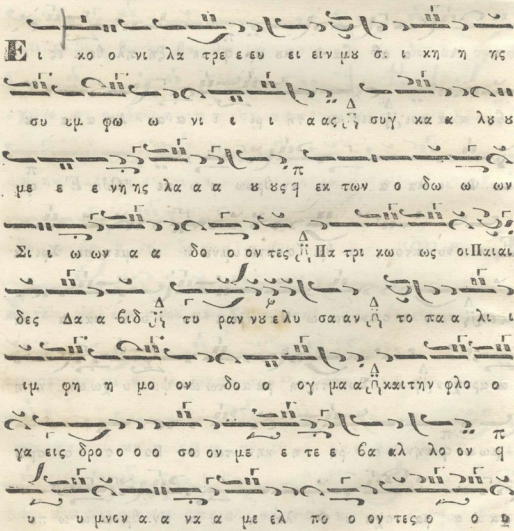 Ει ι κο ο νι λα τρε ε ευ ει ειν μȣ σι ι κη η ης
συ υμ φω ω νι ι ι α ας Δ συγ κα α α λȣ ȣ
με ε ε νη ης λα α α ȣ ȣς π q εκ των ο δω ω ων
Σι ι ω ων α α δο ο ον τες Δ Πα τρι κω ως οι Παι αι
δες Δα α βιδ Δ τυ ραν νȣ ε λυ σα αν Δ το πα α λι ι
ιμ φη η μο ον δο ο ογ μα α Δ και την φλο ο
γα εις δρο ο ο ο σο ον με ε τε ε βα αλ λο ον π q
υ υ μνον α α να α με ελ πο ο ον τες ο ο υ